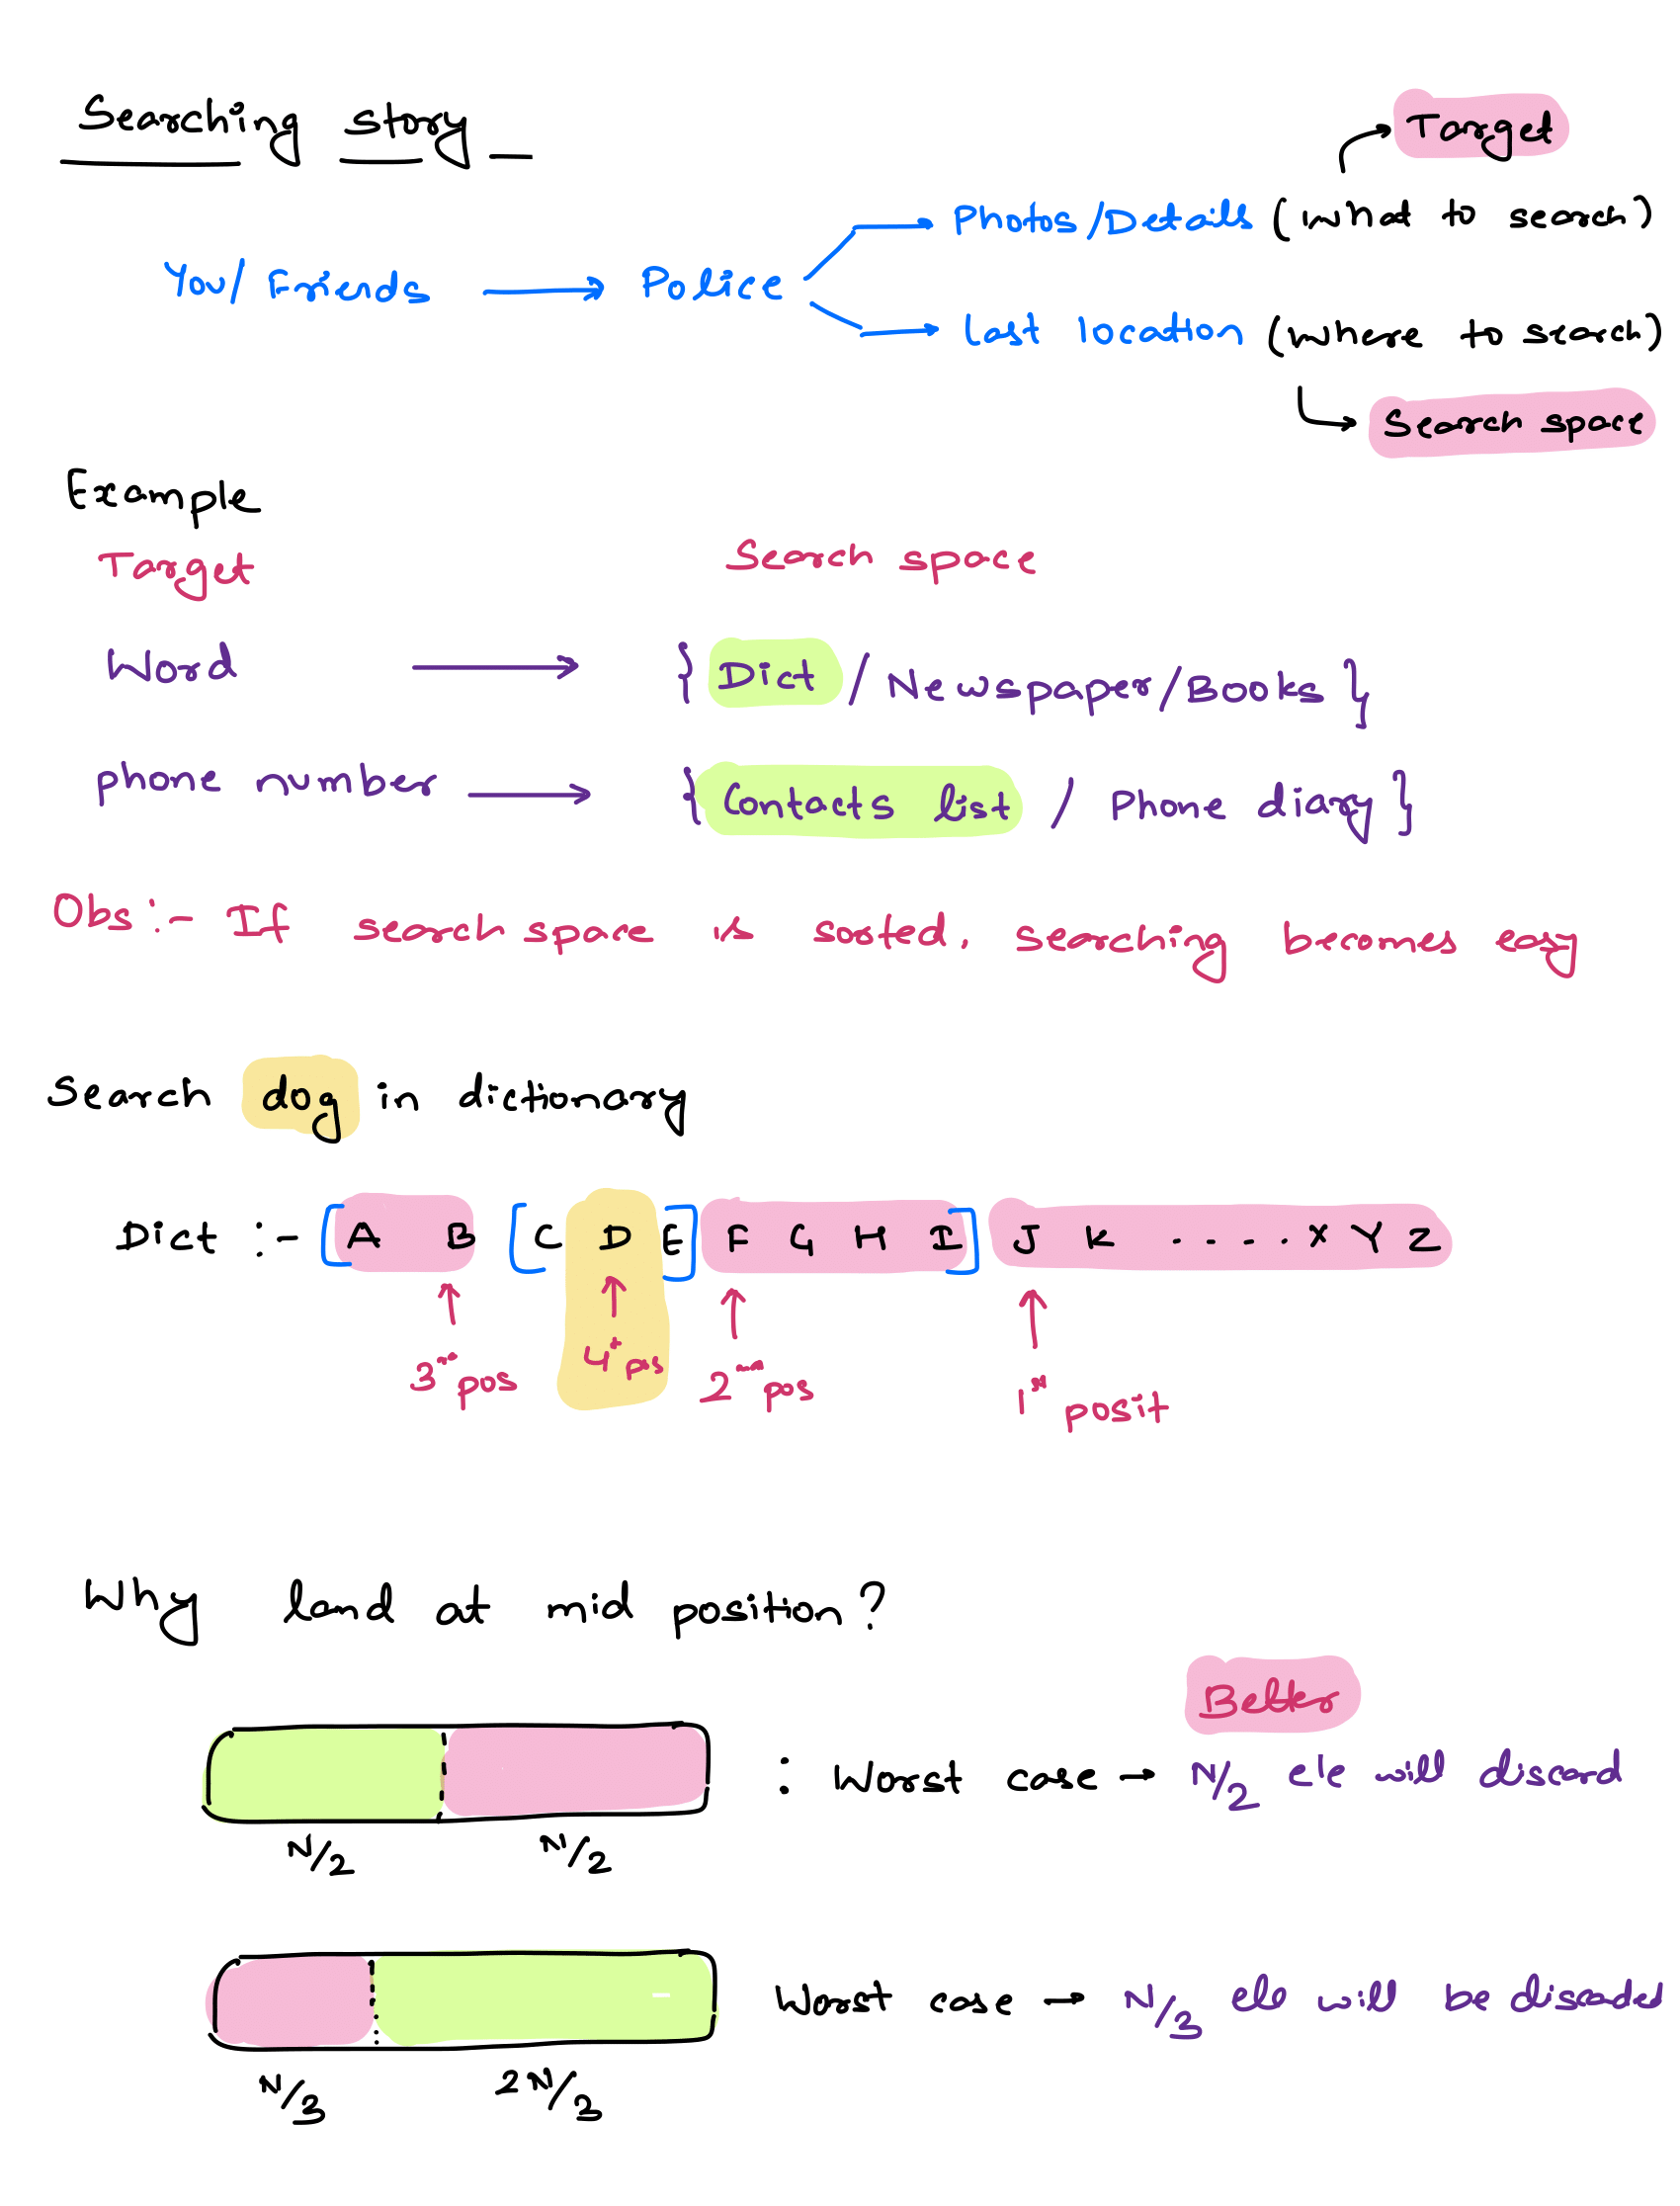 Searching story
Target
You/ Friends → Police → Photos/Details (what to search)
→ last location (where to search)
Search space
Example
Target Search space
Word → { Dict / Newspaper/Books }
phone number → { Contacts list / Phone diary }
Obs :- If search space is sorted, searching becomes easy
Search dog in dictionary
Dict :- [A B [C D E] F G H I] J K ..... X Y Z
3rd pos 4th pos 2nd pos 1st posit
Why land at mid position?
Better
: Worst case → N/2 ele will discard
N/2 N/2
Worst case → N/3 ele will be discaded
N/3 2N/3